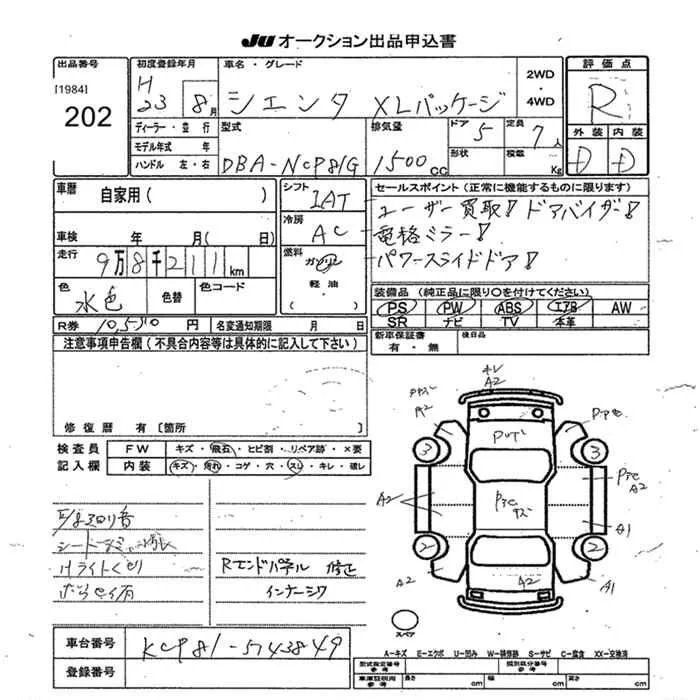 JU オークション出品申込書
出品番号
[1984]
202
初度登録年月
H 23 8月
車名・グレード
シエンタ XLパッケージ
2WD
・
4WD
評価点
R
外装 内装
D D
ディーラー・並行
モデル年式 年
ハンドル 左・右
型式
DBA-NCP81G
排気量
1500cc
ドア 5
定員 7人
形状
積載 Kg
車歴
自家用( )
車検 年 月( 日)
走行
9万8千211km
色
水色
色替
色コード
シフト
IAT
冷房
AC
燃料
ガソリン
軽油
セールスポイント(正常に機能するものに限ります)
ユーザー買取! ドアバイザー!
電格ミラー!
パワースライドドア!
装備品(純正品に限り○を付けてください)
PS PW ABS エアB AW
SR ナビ TV 本革
R券 10,510円
名変通知期限 月 日
新車保証書
有・無
後日品
注意事項申告欄(不具合内容等は具体的に記入して下さい)
修復歴 有〔箇所 〕
検査員
記入欄
FW キズ・飛石・ヒビ割・リペア跡・X要
内装 キズ・汚れ・コゲ・穴・スレ・キレ・破レ
Rエンドパネル 修正
インナーシワ
A2
A2
3
3
A2
A2
A1
2
2
A2
A2
A1
スペア
車台番号
KCP81-5743849
登録番号
A-キズ E-エクボ U-凹み W-補修跡 S-サビ C-腐食 XX-交換済
型式指定番号
参考
類別区分番号
参考
車庫証明用
参考
長さ cm
幅 cm
高さ cm